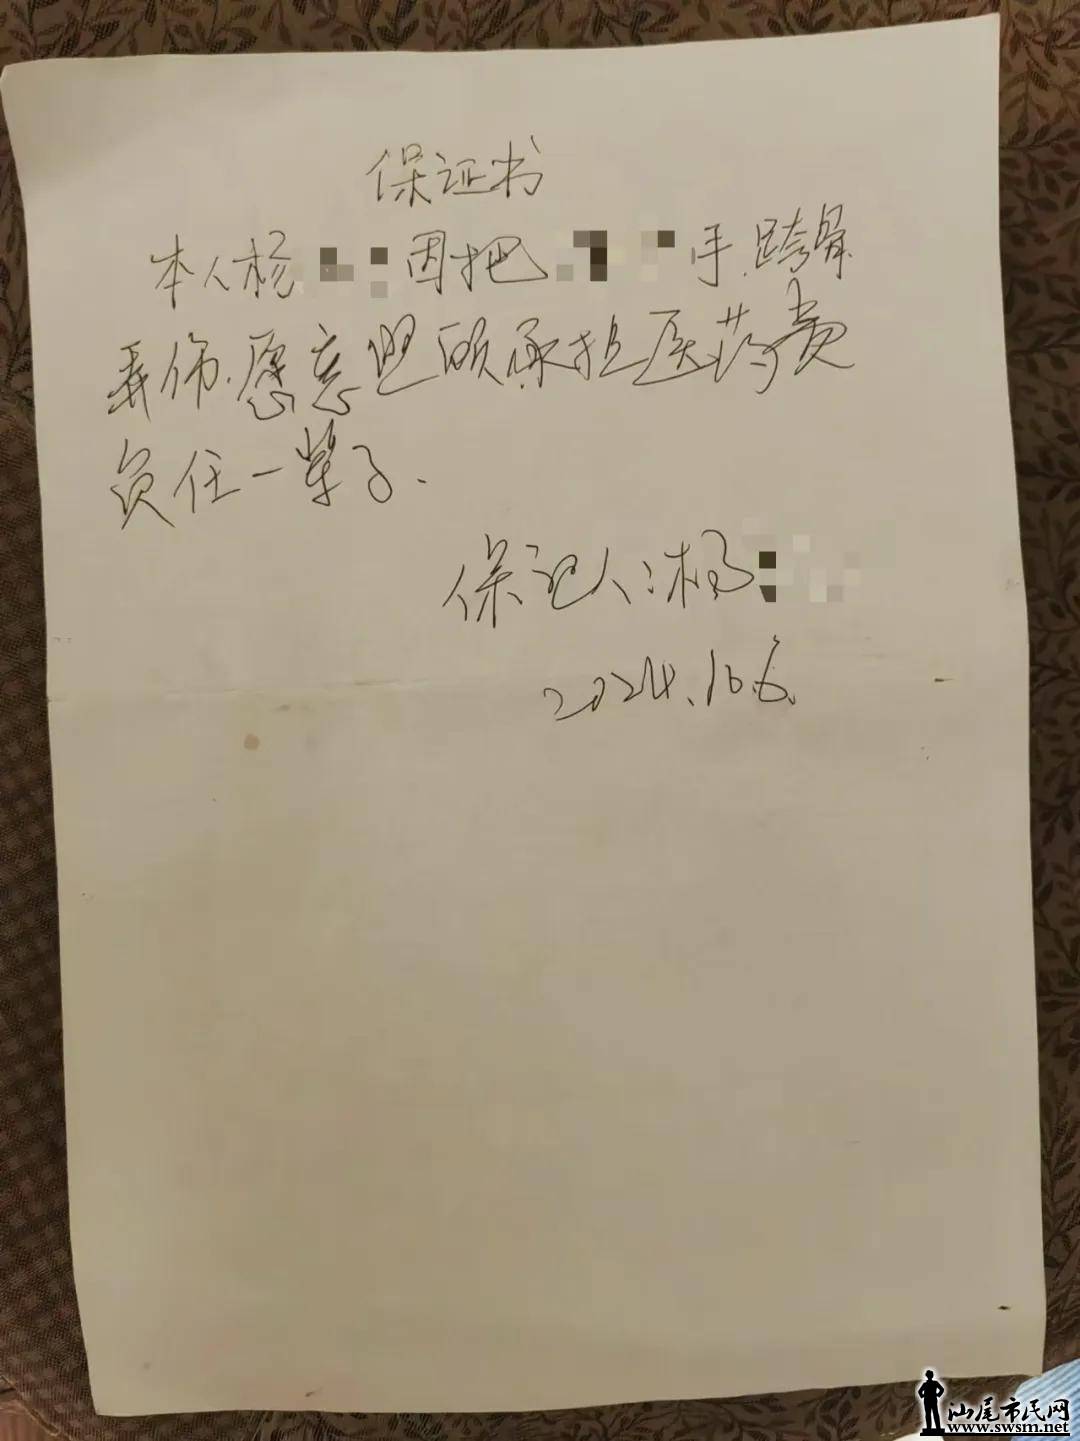 保证书
本人杨 因把 手.跨骨
弄伤.愿意照顾承担医药费
负任一辈子.
保证人:杨
2024.10.6.
汕尾市民网
www.swsm.net